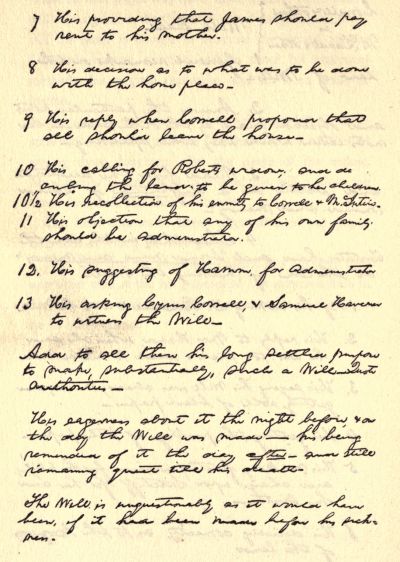 7 His providing that James should pay
rent to his mother.
8 His decision as to what was to be done
with the home place—
9 His reply when Correll proposed that
all should leave the house—
10 His calling for Roberts widow, and de
the land to be given to her children
10½ His recollection of his enmity to Correll &
11 His objection that any of his own family
should be administrator.
12. His suggesting of Hamm, for administrator
13 His asking Cyrus Correll, & Samuel
to witness the Will—
Add to all these his long settled purpose
to make, substantially, such a Will
authorities—
His eagerness about it the night before, & on
the day the Will was made— his being
reminded of it the day after— and still
remaining quiet till his death—
The Will is unquestionably as it would have
been, if it had been made before his sick-
ness.